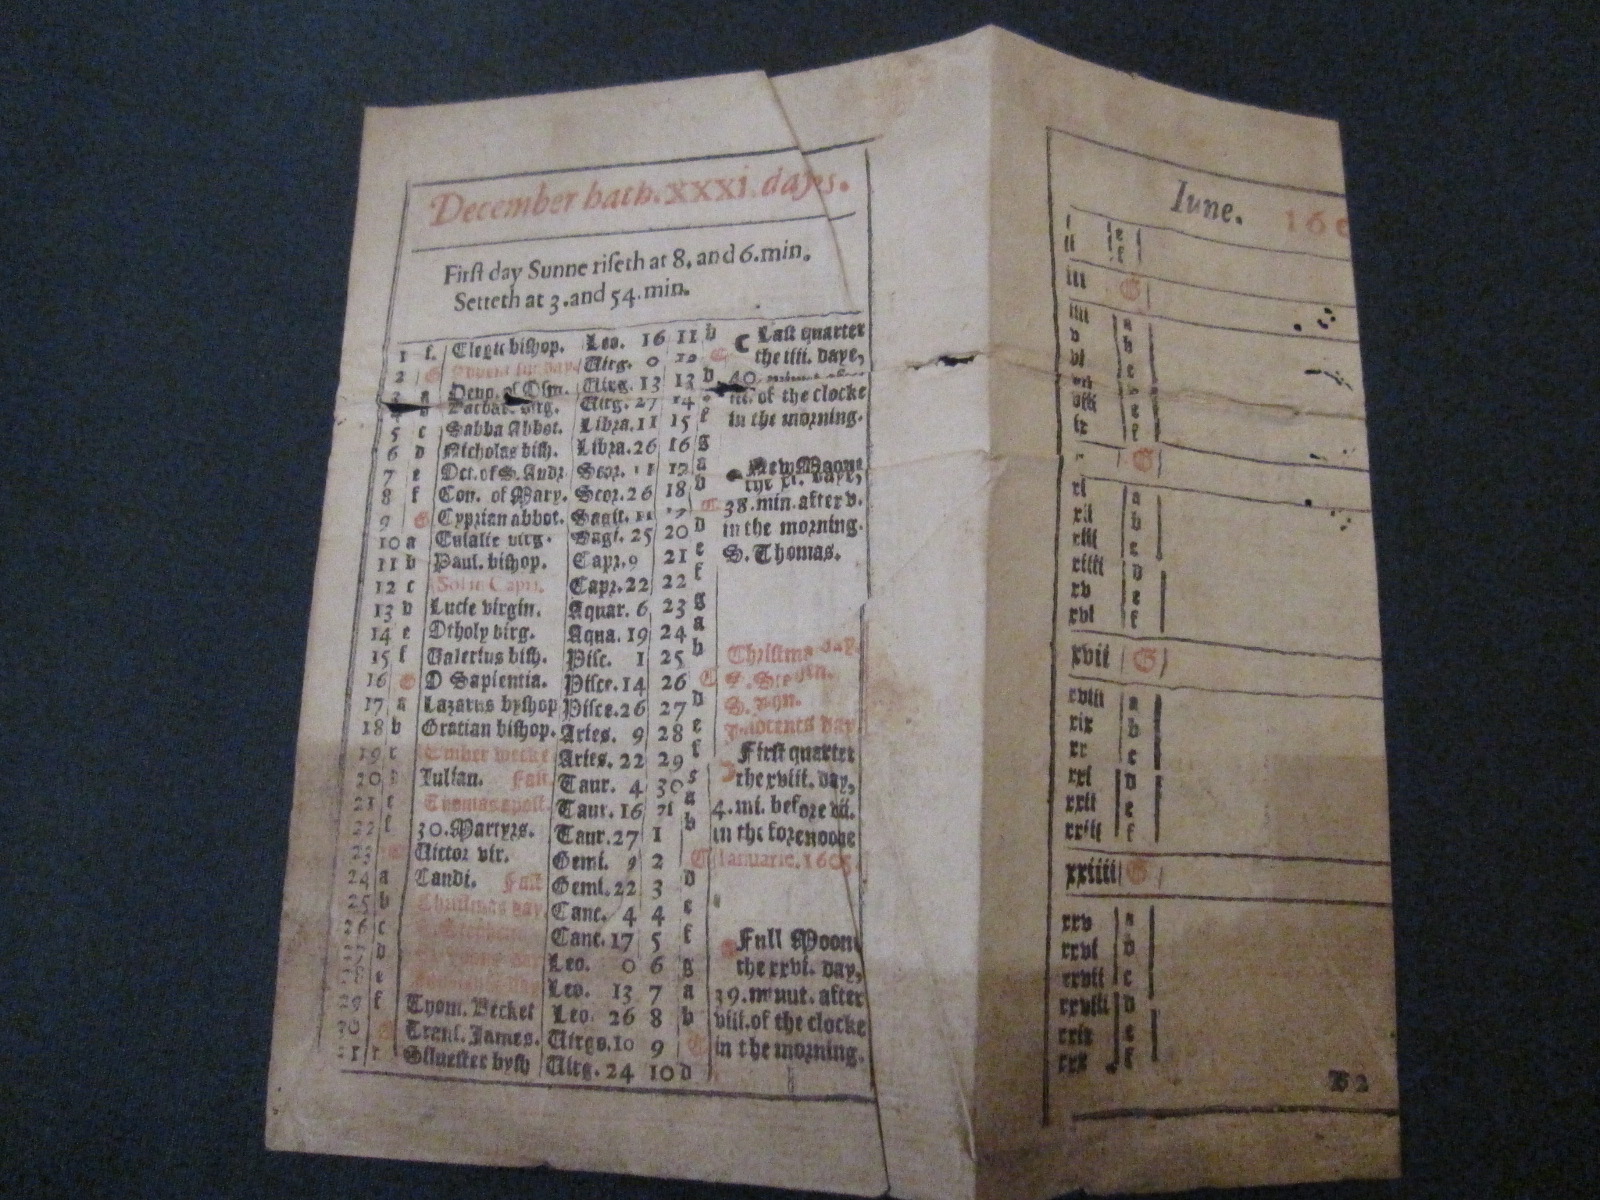 December hath.XXXI.dayes.
Firſt day Sunne riſeth at 8. and 6.min.
Setteth at 3.and 54.min.
1 f. Clegit biſhop. Leo. 16 11 b
2 G Virg. 0 12 C
Virg. 13 13 D
Barbar. virg. Virg. 27 14
5 c Sabba Abbot. Libra.11 15 f
6 D Nicholas biſh. Libra.26 16 g
7 e Oct.of S.Andr Scor. 11 17 a
8 f Con. of Mary. Scor.26 18 b
9 G Cyprian abbot. Sagit. 11
10 a Eulalie virg. Sagi. 25 20 D
11 b Paul. biſhop. Capr.9 21 e
12 c Sol in Capri. Capr.22 22 f
13 D Lucie virgin. Aquar. 6 23 g
14 e Otholy virg. Aqua. 19 24 a
15 f Valerius biſh. Piſc. 1 25 b
16 G O Sapientia. Piſce.14 26 C
17 a Lazarus byſhop Piſce.26 27 D
18 b Gratian biſhop. Aries. 9 28 e
19 c Ember weeke Aries. 22 29 f
20 Iulian. Faſt. Taur. 4 30
21 e Thomas apoſt. Taur. 16 31 a
22 f 30.Martyrs. Taur.27 1 b
23 Victor vir. Gemi. 9 2 C
24 a Candi. Faſt Gemi.22 3 D
25 b Chriſtmas day Canc. 4 4 e
26 c Canc.17 5 f
27 D Leo. 0 6 g
28 e Leo. 13 7 a
29 f Thom. Becket Leo. 26 8 b
30 Tranſ. James. Virgo.10 9 C
31 Silueſter byſh Virg. 24 10 D
Laſt quarter
the iiii. daye,
40
iii. of the clocke
in the morning.
New Moone
the xi. daye,
38.min.after v.
in the morning.
S.Thomas.
Chriſtmas day.
S. Ste
S.
Innocents day
Firſt quarter
the xviii. day,
4.mi. before vii.
in the forenoone
Ianuarie.1605
Full Moone
the xxvi. day,
39.minut. after
viii.of the clocke
in the morning.
Iune. 160
i e
ii f
iii G
iiii a
v b
vi c
vii
viii e
ix f
x G
xi a
xii b
xiii c
xiiii D
xv e
xvi f
xvii G
xviii a
xix b
xx c
xxi D
xxii e
xxiii f
xxiiii G
xxv a
xxvi b
xxvii c
xxviii D
xxix e
xxx f
B 2